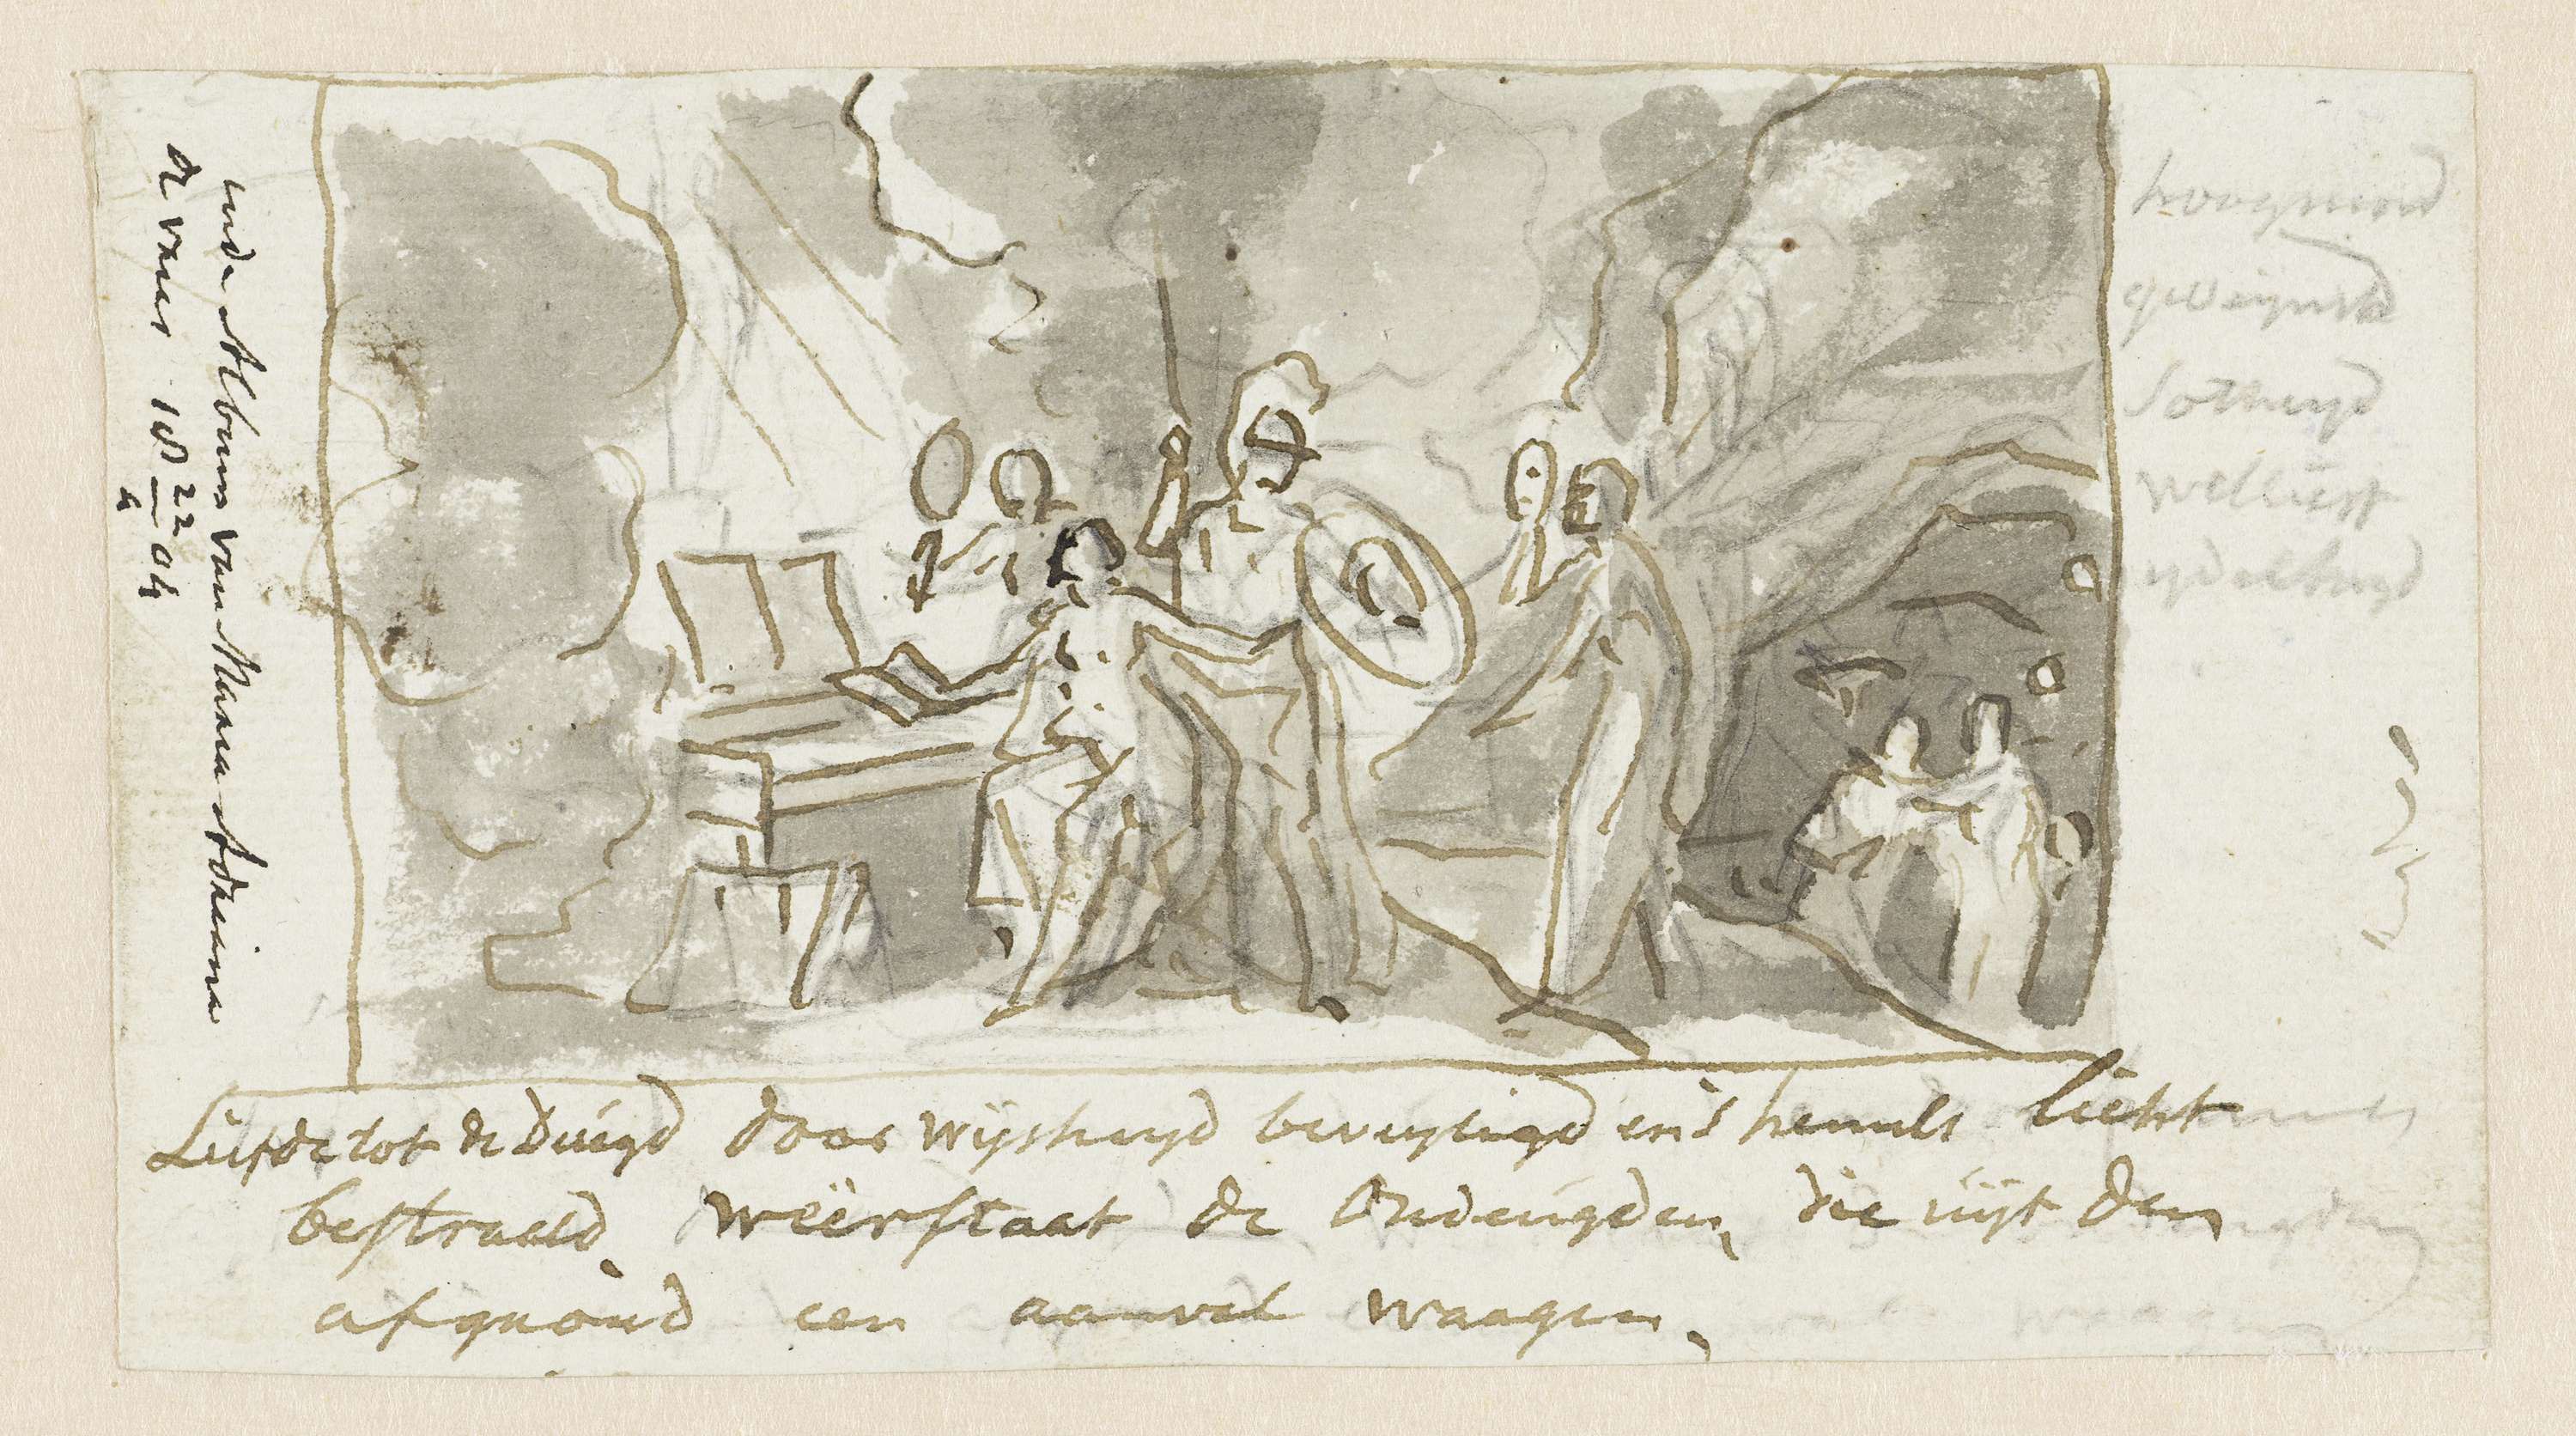 in de Album van Maria Adriana
de Vries 18 22/4 04
hoogmoed
geveijnsd
sotheyd
wellust
ydelheyd
Liefde tot de deugd door wijsheyd beveyligd en 's hemels licht
bestraald, weërstaat de Ondeugden, die uijt den
afgrond een aanval waagen.